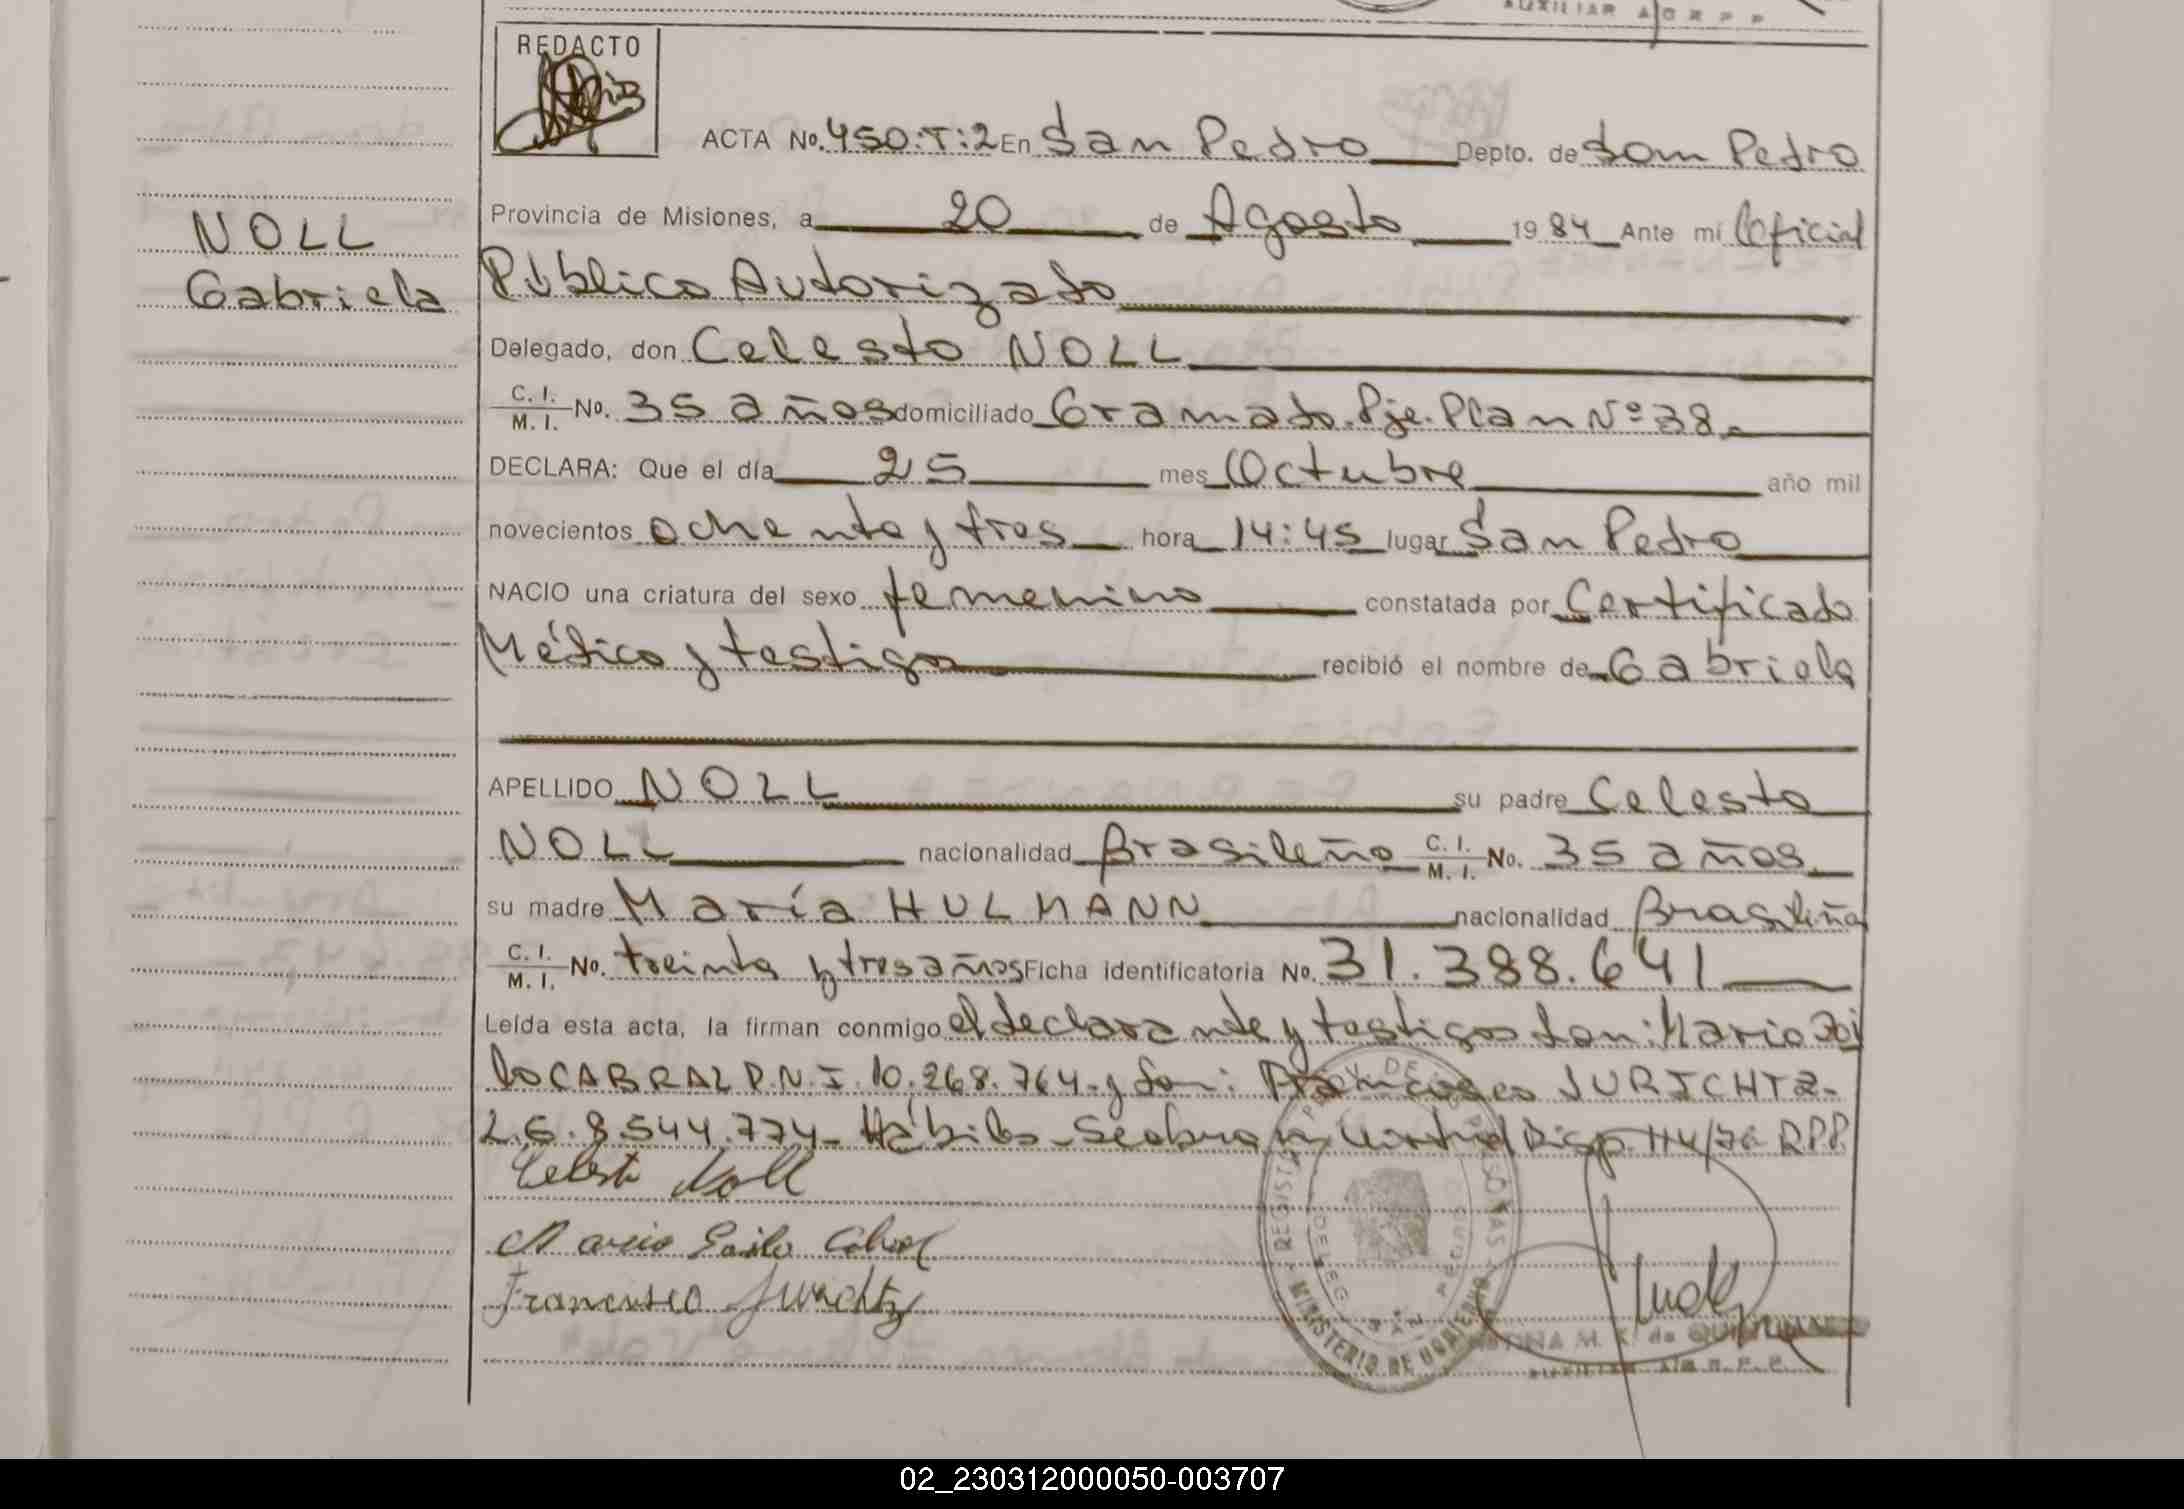 AUXILIAR A/C R P P
REDACTO
ACTA No. 450:T:2 En San Pedro Depto. de San Pedro
Provincia de Misiones, a 20 de Agosto 1984 Ante mí Oficial
NOLL
Gabriela
Público Autorizado
Delegado, don Celesto NOLL
C. I. M. I. No. 35 años domiciliado Gramado. Pje. Plan Nº 38.
DECLARA: Que el día 25 mes Octubre año mil
novecientos ochenta y tres hora 14:45 lugar San Pedro
NACIO una criatura del sexo femenino constatada por Certificado
Médico y testigos recibió el nombre de Gabriela
APELLIDO NOLL su padre Celesto
NOLL nacionalidad Brasileño C. I. M. I. No. 35 años
su madre María HULMANN nacionalidad Brasileña
C. I. M. I. No. treinta y tres años Ficha identificatoria No. 31.388.641
Leída esta acta, la firman conmigo el declarante y testigos don: Mario
CABRAL D.N.I. 10.268.764. y don: Francisco JURICHTZ-
L.E. 8.544.774- Hábiles- Se labra en Virtud Disp. 114/76 RPP.
Celesto Noll
Mario Cabral
Francisco Jurichtz
REGIST PROV. DE LAS PERSONAS
DELEG SAN PEDRO
MINISTERIO DE GOBIERNO
M. K. de
AUXILIAR A/C R. P. P.
02_230312000050-003707